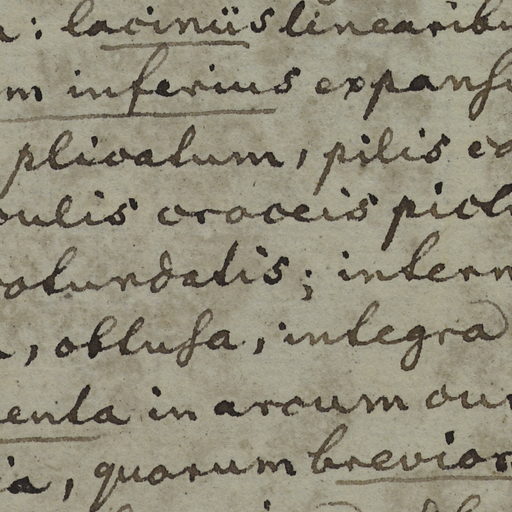 : laciniis linearibu
m inferius expansu
plicatum, pilis co
culis croceis pict
rotundatis; intern
, obtusa, integra
menta in arcum cur
ia, quorum brevior